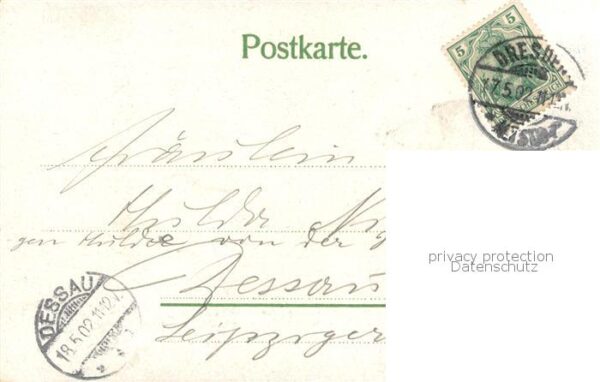 Postkarte.
5 5
DRESDEN
17.5.02
NEUSTADT
Fräulein
Hulda
gen Hulda von der
Dessau
DESSAU
18.5.02.11-12V.
Leipziger
privacy protection
Datenschutz